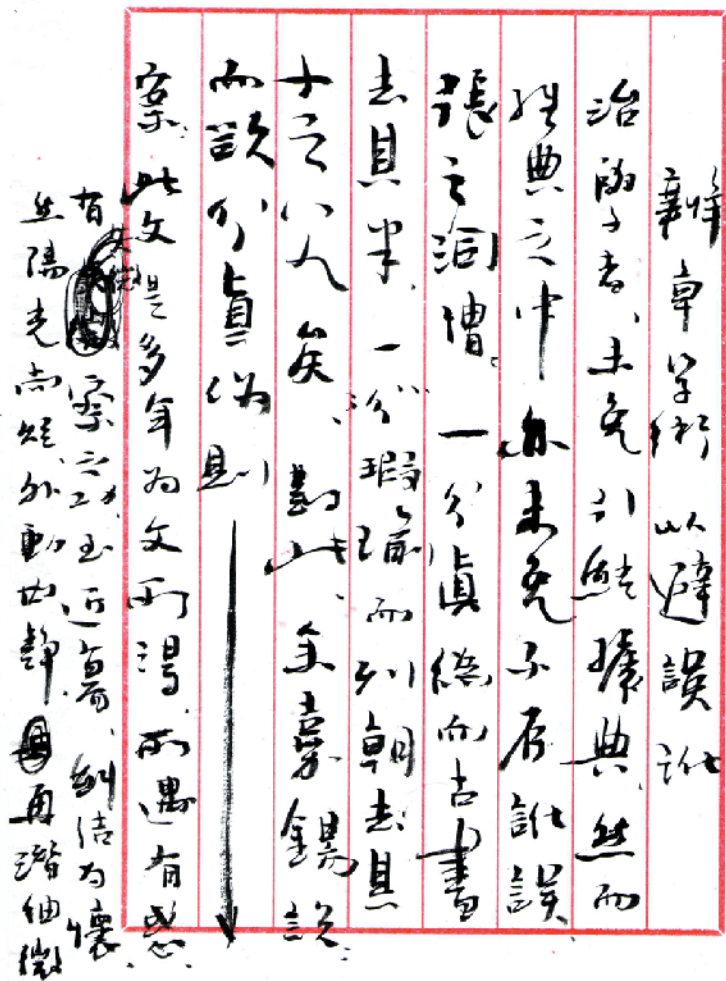 辨章学術以避誤訛
治學者、未免引經據典、然而
經典之中亦未免不存訛誤
張之洞謂、一分真偽而古書
去其半、一分瑕瑜而列朝去其
十之八九矣、對此、余嘉錫說
而欲分真偽則
案、此文是多年為文所得、所遇有感、
有 察之功、至近暮、糾結為懷、
然陽光尚短、外動內靜、再潛細微